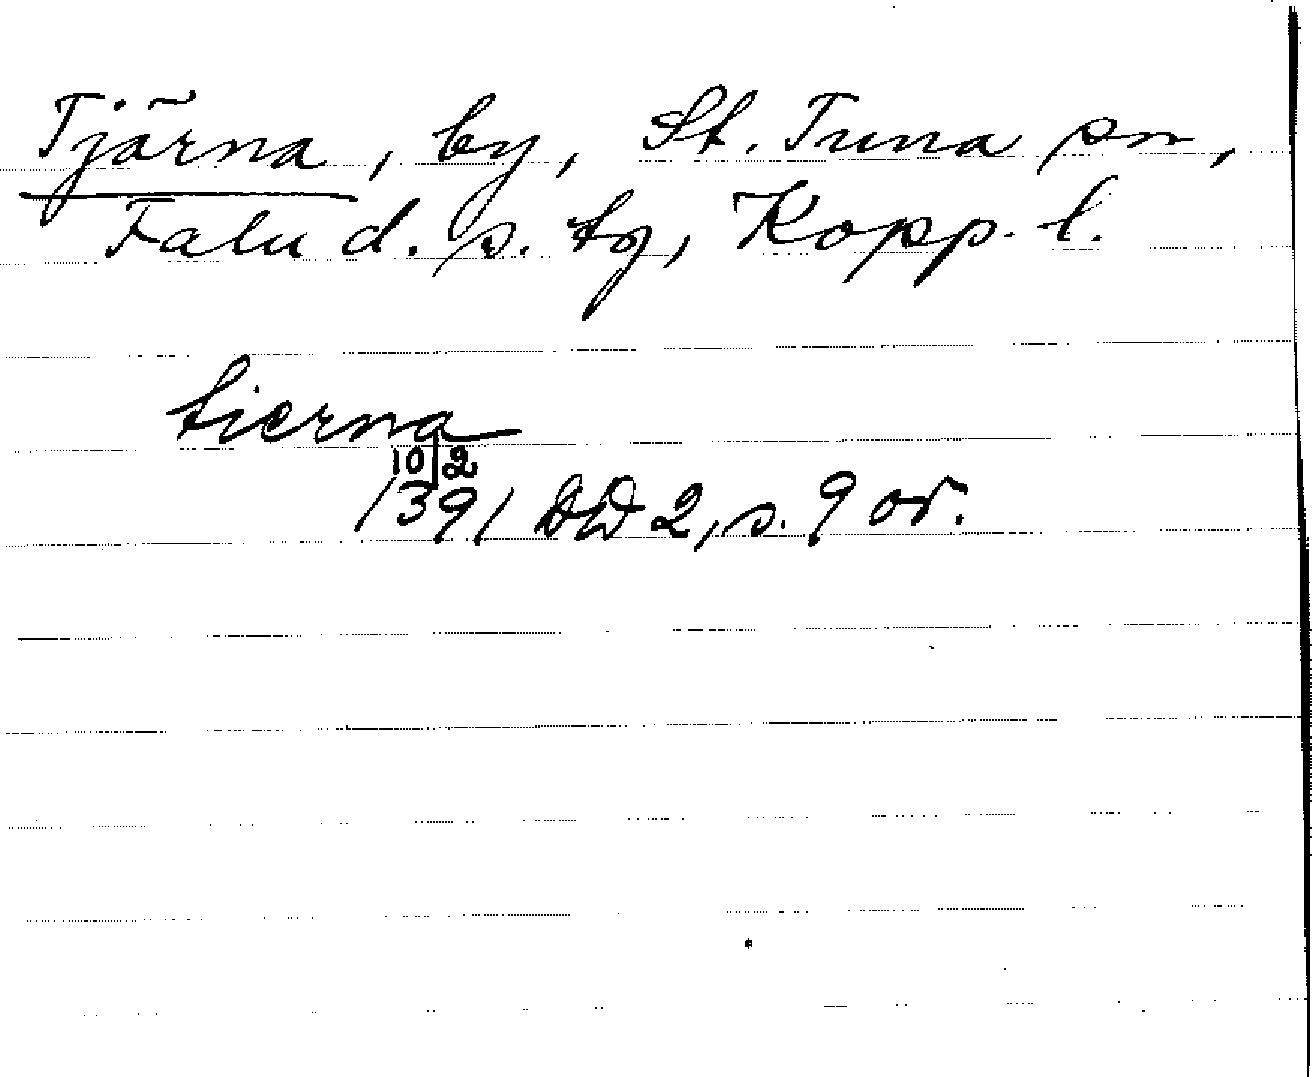 Tjärna, by, St. Tuna sn,
Falu d. s. tg, Kopp. l.
tierna
10 2
1391 DD 2, s. 9 or.